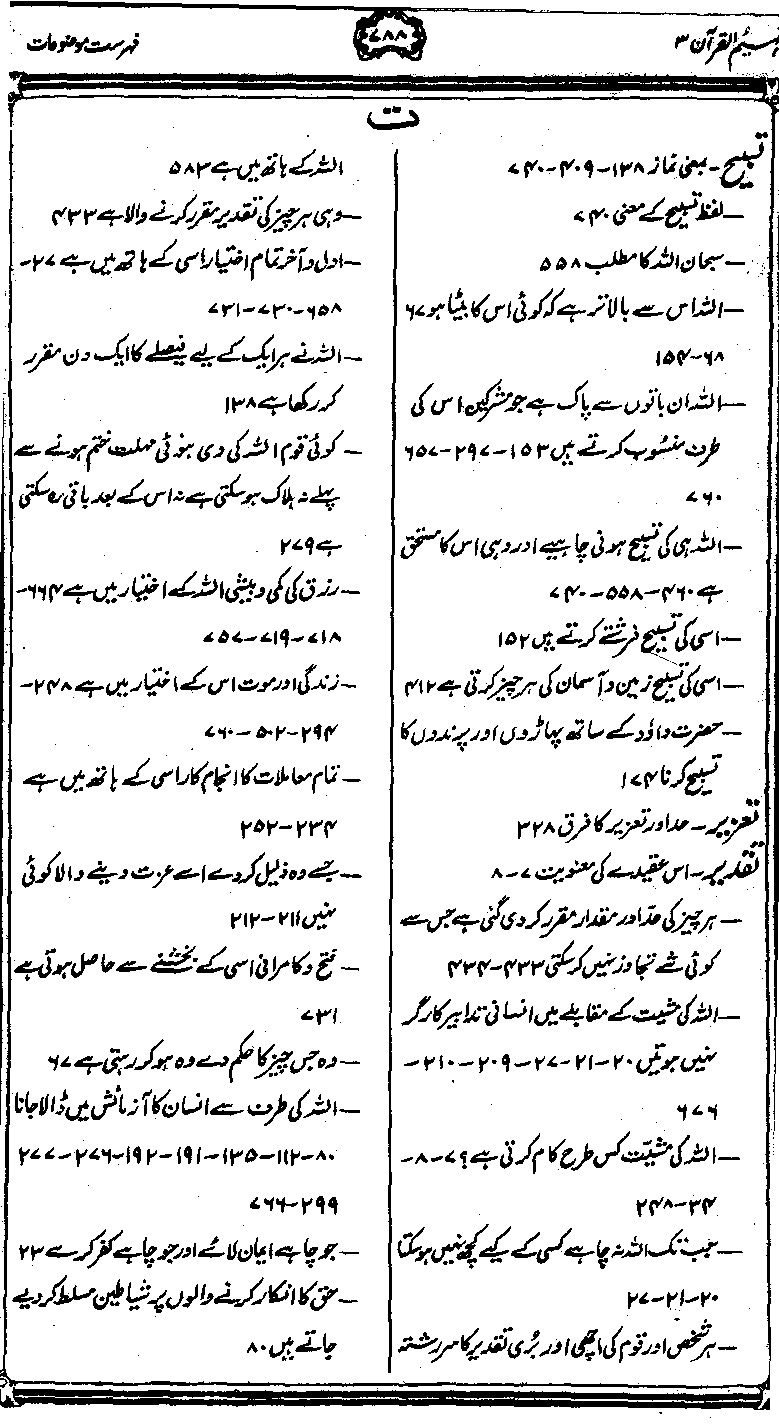 تفہیم القرآن ۳
۷۸۸
فہرست موضوعات
ت
تسبیح - بمعنی نماز ۱۳۸-۴۰۹-۷۴۰
— لفظ تسبیح کے معنی ۷۴۰
— سبحان اللہ کا مطلب ۵۵۸
— اللہ اس سے بالاتر ہے کہ کوئی اس کا بیٹا ہو ۶۷
۶۸-۱۵۴
— اللہ ان باتوں سے پاک ہے جو مشرکین اس کی
طرف منسوب کرتے ہیں ۱۵۳-۲۹۷-۶۵۷
۷۶۰
— اللہ ہی کی تسبیح ہونی چاہیے اور وہی اس کا مستحق
ہے ۴۶۰-۵۵۸-۷۴۰
— اسی کی تسبیح فرشتے کرتے ہیں ۱۵۲
— اسی کی تسبیح زمین و آسمان کی ہر چیز کرتی ہے ۴۱۲
— حضرت داؤد کے ساتھ پہاڑوں اور پرندوں کا
تسبیح کرنا ۱۷۴
تعزیر - حد اور تعزیر کا فرق ۳۲۸
تقدیر - اس عقیدے کی معنویت ۷-۸
— ہر چیز کی حد اور مقدار مقرر کر دی گئی ہے جس سے
کوئی شے تجاوز نہیں کر سکتی ۴۳۳-۴۳۴
— اللہ کی مشیت کے مقابلے میں انسانی تدابیر کارگر
نہیں ہوتیں ۲۰-۲۱-۲۷-۲۰۹-۲۱۰-
۶۷۶
— اللہ کی مشیّت کس طرح کام کرتی ہے؟ ۷-۸-
۳۴-۲۴۸
— جب تک اللہ نہ چاہے کسی کے کیے کچھ نہیں ہوسکتا
۲۰-۲۱-۲۷
— ہر شخص اور قوم کی اچھی اور بُری تقدیر کا سررشتہ
اللہ کے ہاتھ میں ہے ۵۸۳
— وہی ہر چیز کی تقدیر مقرر کرنے والا ہے ۴۳۳
— اول و آخر تمام اختیار اسی کے ہاتھ میں ہے ۲۷-
۶۵۸-۷۳۰-۷۳۱
— اللہ نے ہر ایک کے لیے فیصلے کا ایک دن مقرر
کر رکھا ہے ۱۳۸
— کوئی قوم اللہ کی دی ہوئی مہلت ختم ہونے سے
پہلے نہ ہلاک ہوسکتی ہے نہ اس کے بعد باقی رہ سکتی
ہے ۲۷۹
— رزق کی کمی و بیشی اللہ کے اختیار میں ہے ۶۶۴-
۷۱۸-۷۱۹-۷۵۷
— زندگی اور موت اس کے اختیار میں ہے ۲۴۸-
۲۹۴-۵۰۲-۷۶۰
— تمام معاملات کا انجام کار اسی کے ہاتھ میں ہے
۲۳۴-۲۵۲
— جسے وہ ذلیل کر دے اسے عزت دینے والا کوئی
نہیں ۲۱۱-۲۱۲
— فتح و کامرانی اسی کے بخشنے سے حاصل ہوتی ہے
۷۳۱
— وہ جس چیز کا حکم دے وہ ہو کر رہتی ہے ۶۷
— اللہ کی طرف سے انسان کا آزمائش میں ڈالا جانا
۸۰-۱۱۲-۱۳۵-۱۹۱-۱۹۲-۲۷۶-۲۷۷
۲۹۹-۷۶۶
— جو چاہے ایمان لائے اور جو چاہے کفر کرے ۲۳
— حق کا انکار کرنے والوں پر شیاطین مسلط کر دیے
جاتے ہیں ۸۰